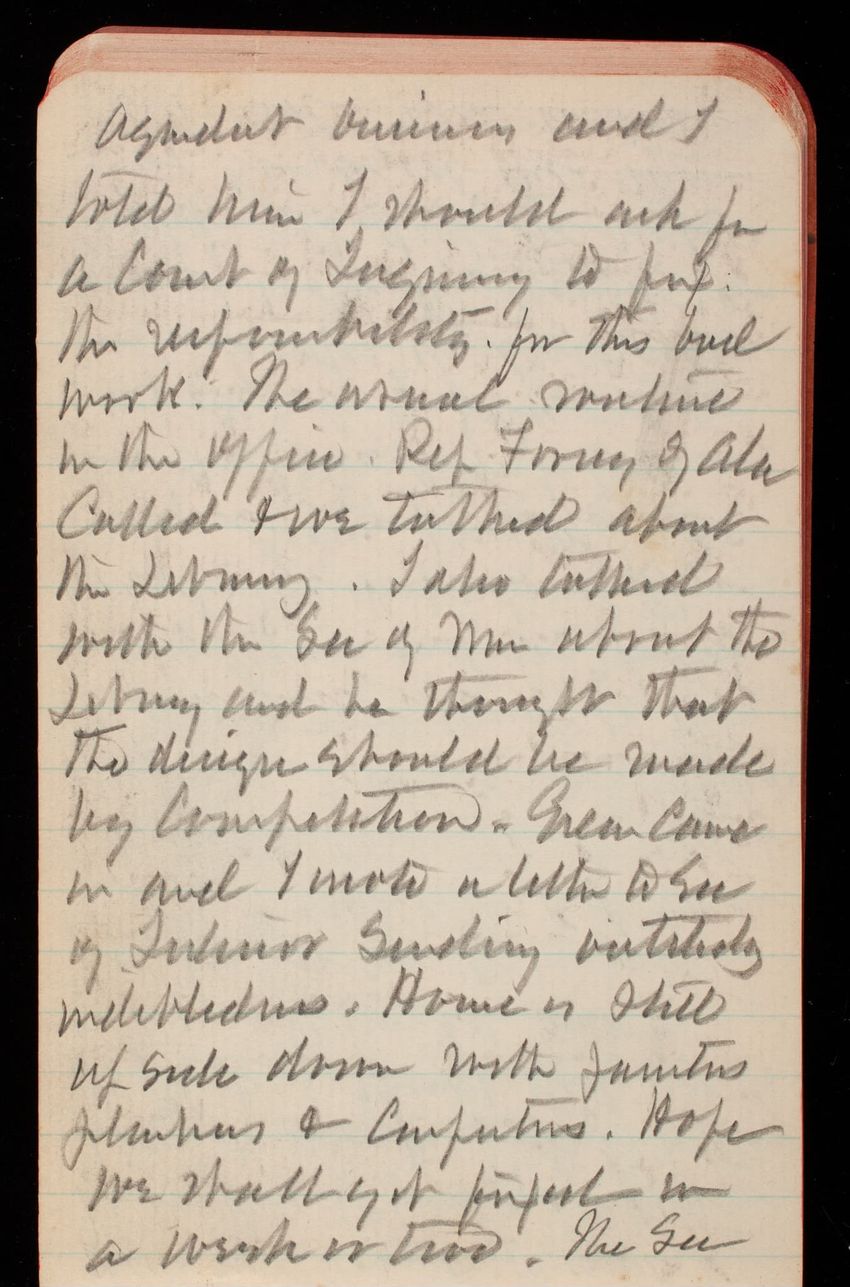 aqueduct business and I
told him I should ask for
a Court of Inquiry to fix
the responsibility for this bad
work. The usual routine
in the office. Rep Forney of Ala
Called & we talked about
the Library. I also talked
with the Sec of War about the
Library and he thought that
the design should be made
by Competition. Green came
in and I wrote a letter to Sec
of Interior Sending
indebtedness. House is still
up side down with painters
plumbers & Carpenters. Hope
we shall get fixed in
a week or two. The Sec